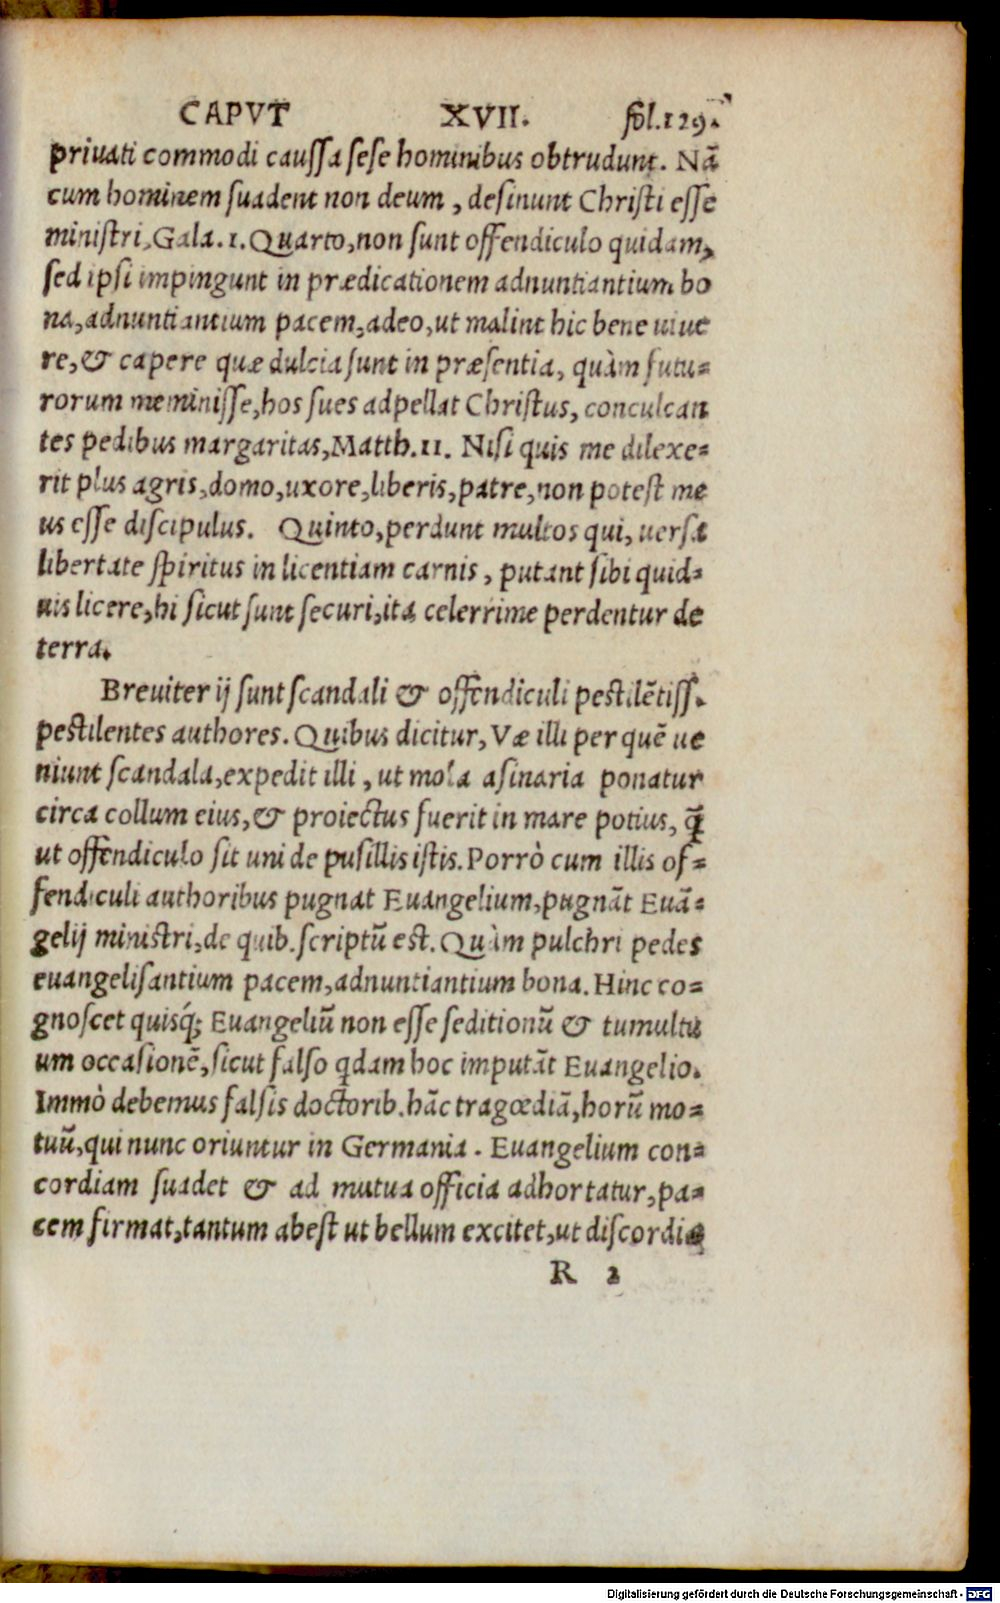 CAPVT XVII. fol.129.
priuati commodi caussa sese hominibus obtrudunt. Nā
cum hominem suadent non deum, desinunt Christi esse
ministri, Gala.1. Quarto, non sunt offendiculo quidam,
sed ipsi impingunt in prædicationem adnuntiantium bo
na, adnuntiantium pacem, adeo, ut malint hic bene uiue
re, & capere quæ dulcia sunt in præsentia, quàm futu=
rorum meminisse, hos sues adpellat Christus, conculcan
tes pedibus margaritas, Matth.11. Nisi quis me dilexe=
rit plus agris, domo, uxore, liberis, patre, non potest me
us esse discipulus. Quinto, perdunt multos qui, uersa
libertate spiritus in licentiam carnis, putant sibi quid=
uis licere, hi sicut sunt securi, ita celerrime perdentur de
terra.
Breuiter ij sunt scandali & offendiculi pestilētiss.
pestilentes authores. Quibus dicitur, Væ illi per quē ue
niunt scandala, expedit illi, ut mola asinaria ponatur
circa collum eius, & proiectus fuerit in mare potius, q̄
ut offendiculo sit uni de pusillis istis. Porrò cum illis of=
fendiculi authoribus pugnat Euangelium, pugnāt Euā=
gelij ministri, de quib. scriptū est. Quàm pulchri pedes
euangelisantium pacem, adnuntiantium bona. Hinc co=
gnoscet quisq́; Euangeliū non esse seditionū & tumultu
um occasionē, sicut falso qdam hoc imputāt Euangelio.
Immò debemus falsis doctorib. hāc tragœdiā, horū mo=
tuū, qui nunc oriuntur in Germania. Euangelium con=
cordiam suadet & ad mutua officia adhortatur, pa=
cem firmat, tantum abest ut bellum excitet, ut discordię
R 2
Digitalisierung gefördert durch die Deutsche Forschungsgemeinschaft - DFG